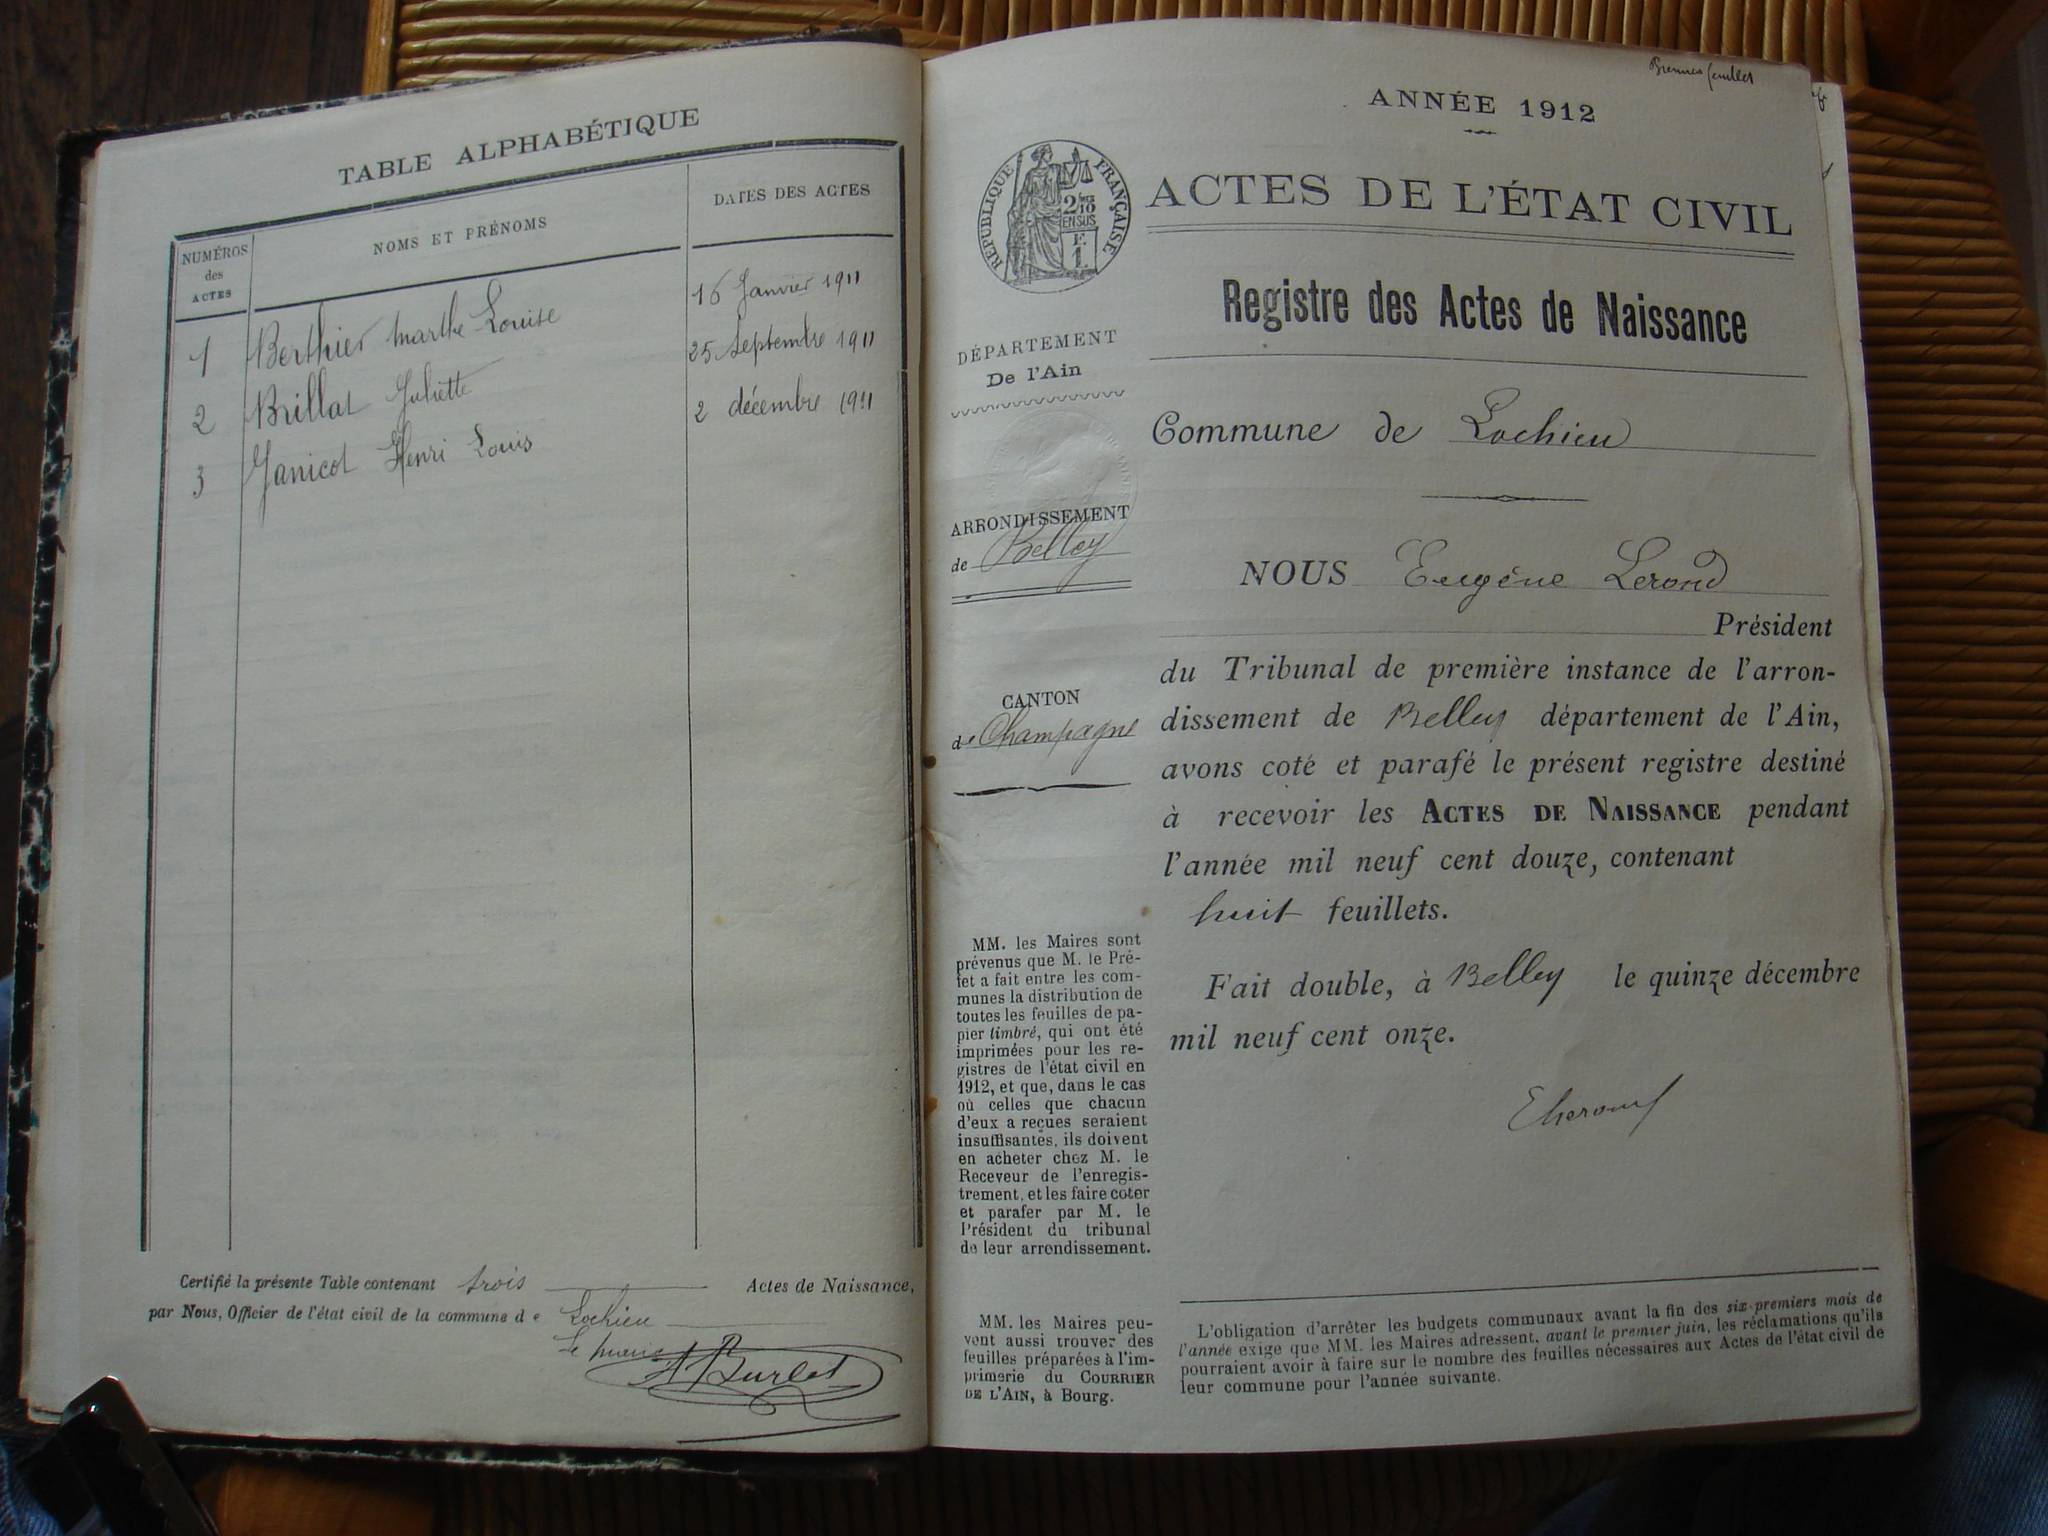 TABLE ALPHABÉTIQUE
NUMÉROS
des
ACTES
NOMS ET PRÉNOMS
DATES DES ACTES
1 Berthier Marthe Louise 16 Janvier 1911
2 Brillat Juliette 25 Septembre 1911
3 Janicot Henri Louis 2 décembre 1911
Certifié la présente Table contenant trois Actes de Naissance,
par Nous, Officier de l'état civil de la commune de Lochieu
Le maire
A Burlet
Premier feuillet
ANNÉE 1912
ACTES DE L'ÉTAT CIVIL
RÉPUBLIQUE FRANÇAISE
Registre des Actes de Naissance
DÉPARTEMENT
De l'Ain
Commune de Lochieu
ARRONDISSEMENT
de Belley
CANTON
de Champagne
NOUS Eugène Lerond
Président
du Tribunal de première instance de l'arron-
dissement de Belley département de l'Ain,
avons coté et parafé le présent registre destiné
à recevoir les ACTES DE NAISSANCE pendant
l'année mil neuf cent douze, contenant
huit feuillets.
Fait double, à Belley le quinze décembre
mil neuf cent onze.
MM. les Maires sont
prévenus que M. le Pré-
fet a fait entre les com-
munes la distribution de
toutes les feuilles de pa-
pier timbré, qui ont été
imprimées pour les re-
gistres de l'état civil en
1912, et que, dans le cas
où celles que chacun
d'eux a reçues seraient
insuffisantes, ils doivent
en acheter chez M. le
Receveur de l'enregis-
trement, et les faire coter
et parafer par M. le
Président du tribunal
de leur arrondissement.
MM. les Maires peu-
vent aussi trouver des
feuilles préparées à l'im-
primerie du COURRIER
DE L'AIN, à Bourg.
L'obligation d'arrêter les budgets communaux avant la fin des six premiers mois de
l'année exige que MM. les Maires adressent, avant le premier juin, les réclamations qu'ils
pourraient avoir à faire sur le nombre des feuilles nécessaires aux Actes de l'état civil de
leur commune pour l'année suivante.